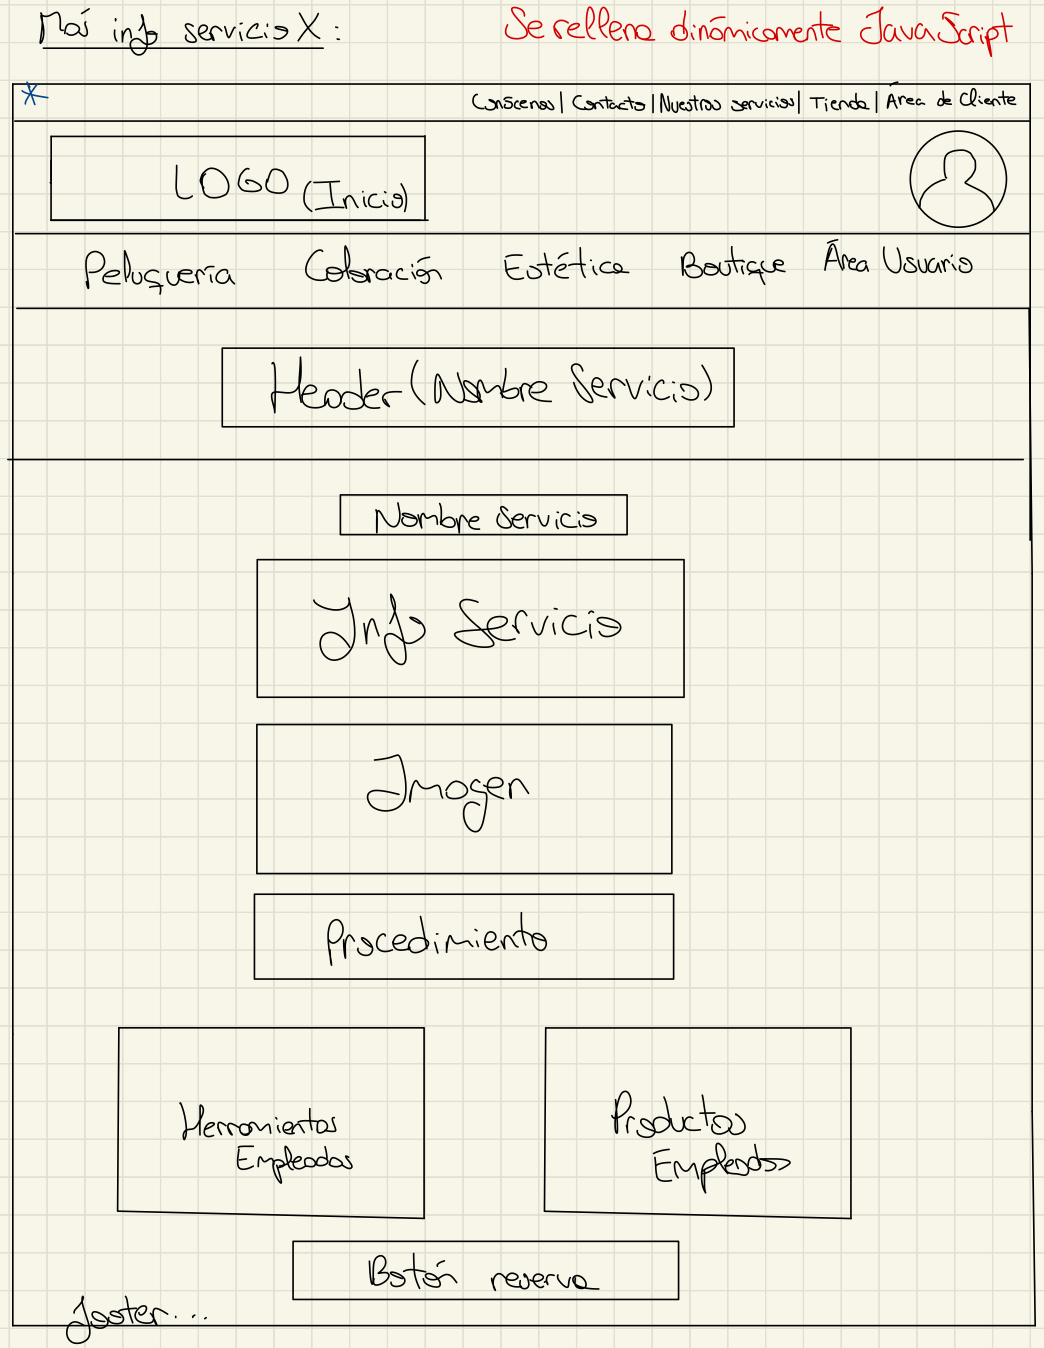 Más info servicio X:
Se rellena dinámicamente JavaScript
*
Conócenos | Contacto | Nuestros servicios | Tienda | Área de Cliente
LOGO (Inicio)
Peluquería Coloración Estética Boutique Área Usuario
Header (Nombre Servicio)
Nombre Servicio
Info Servicio
Imagen
Procedimiento
Herramientas
Empleadas
Productos
Empleados
Botón reserva
footer...